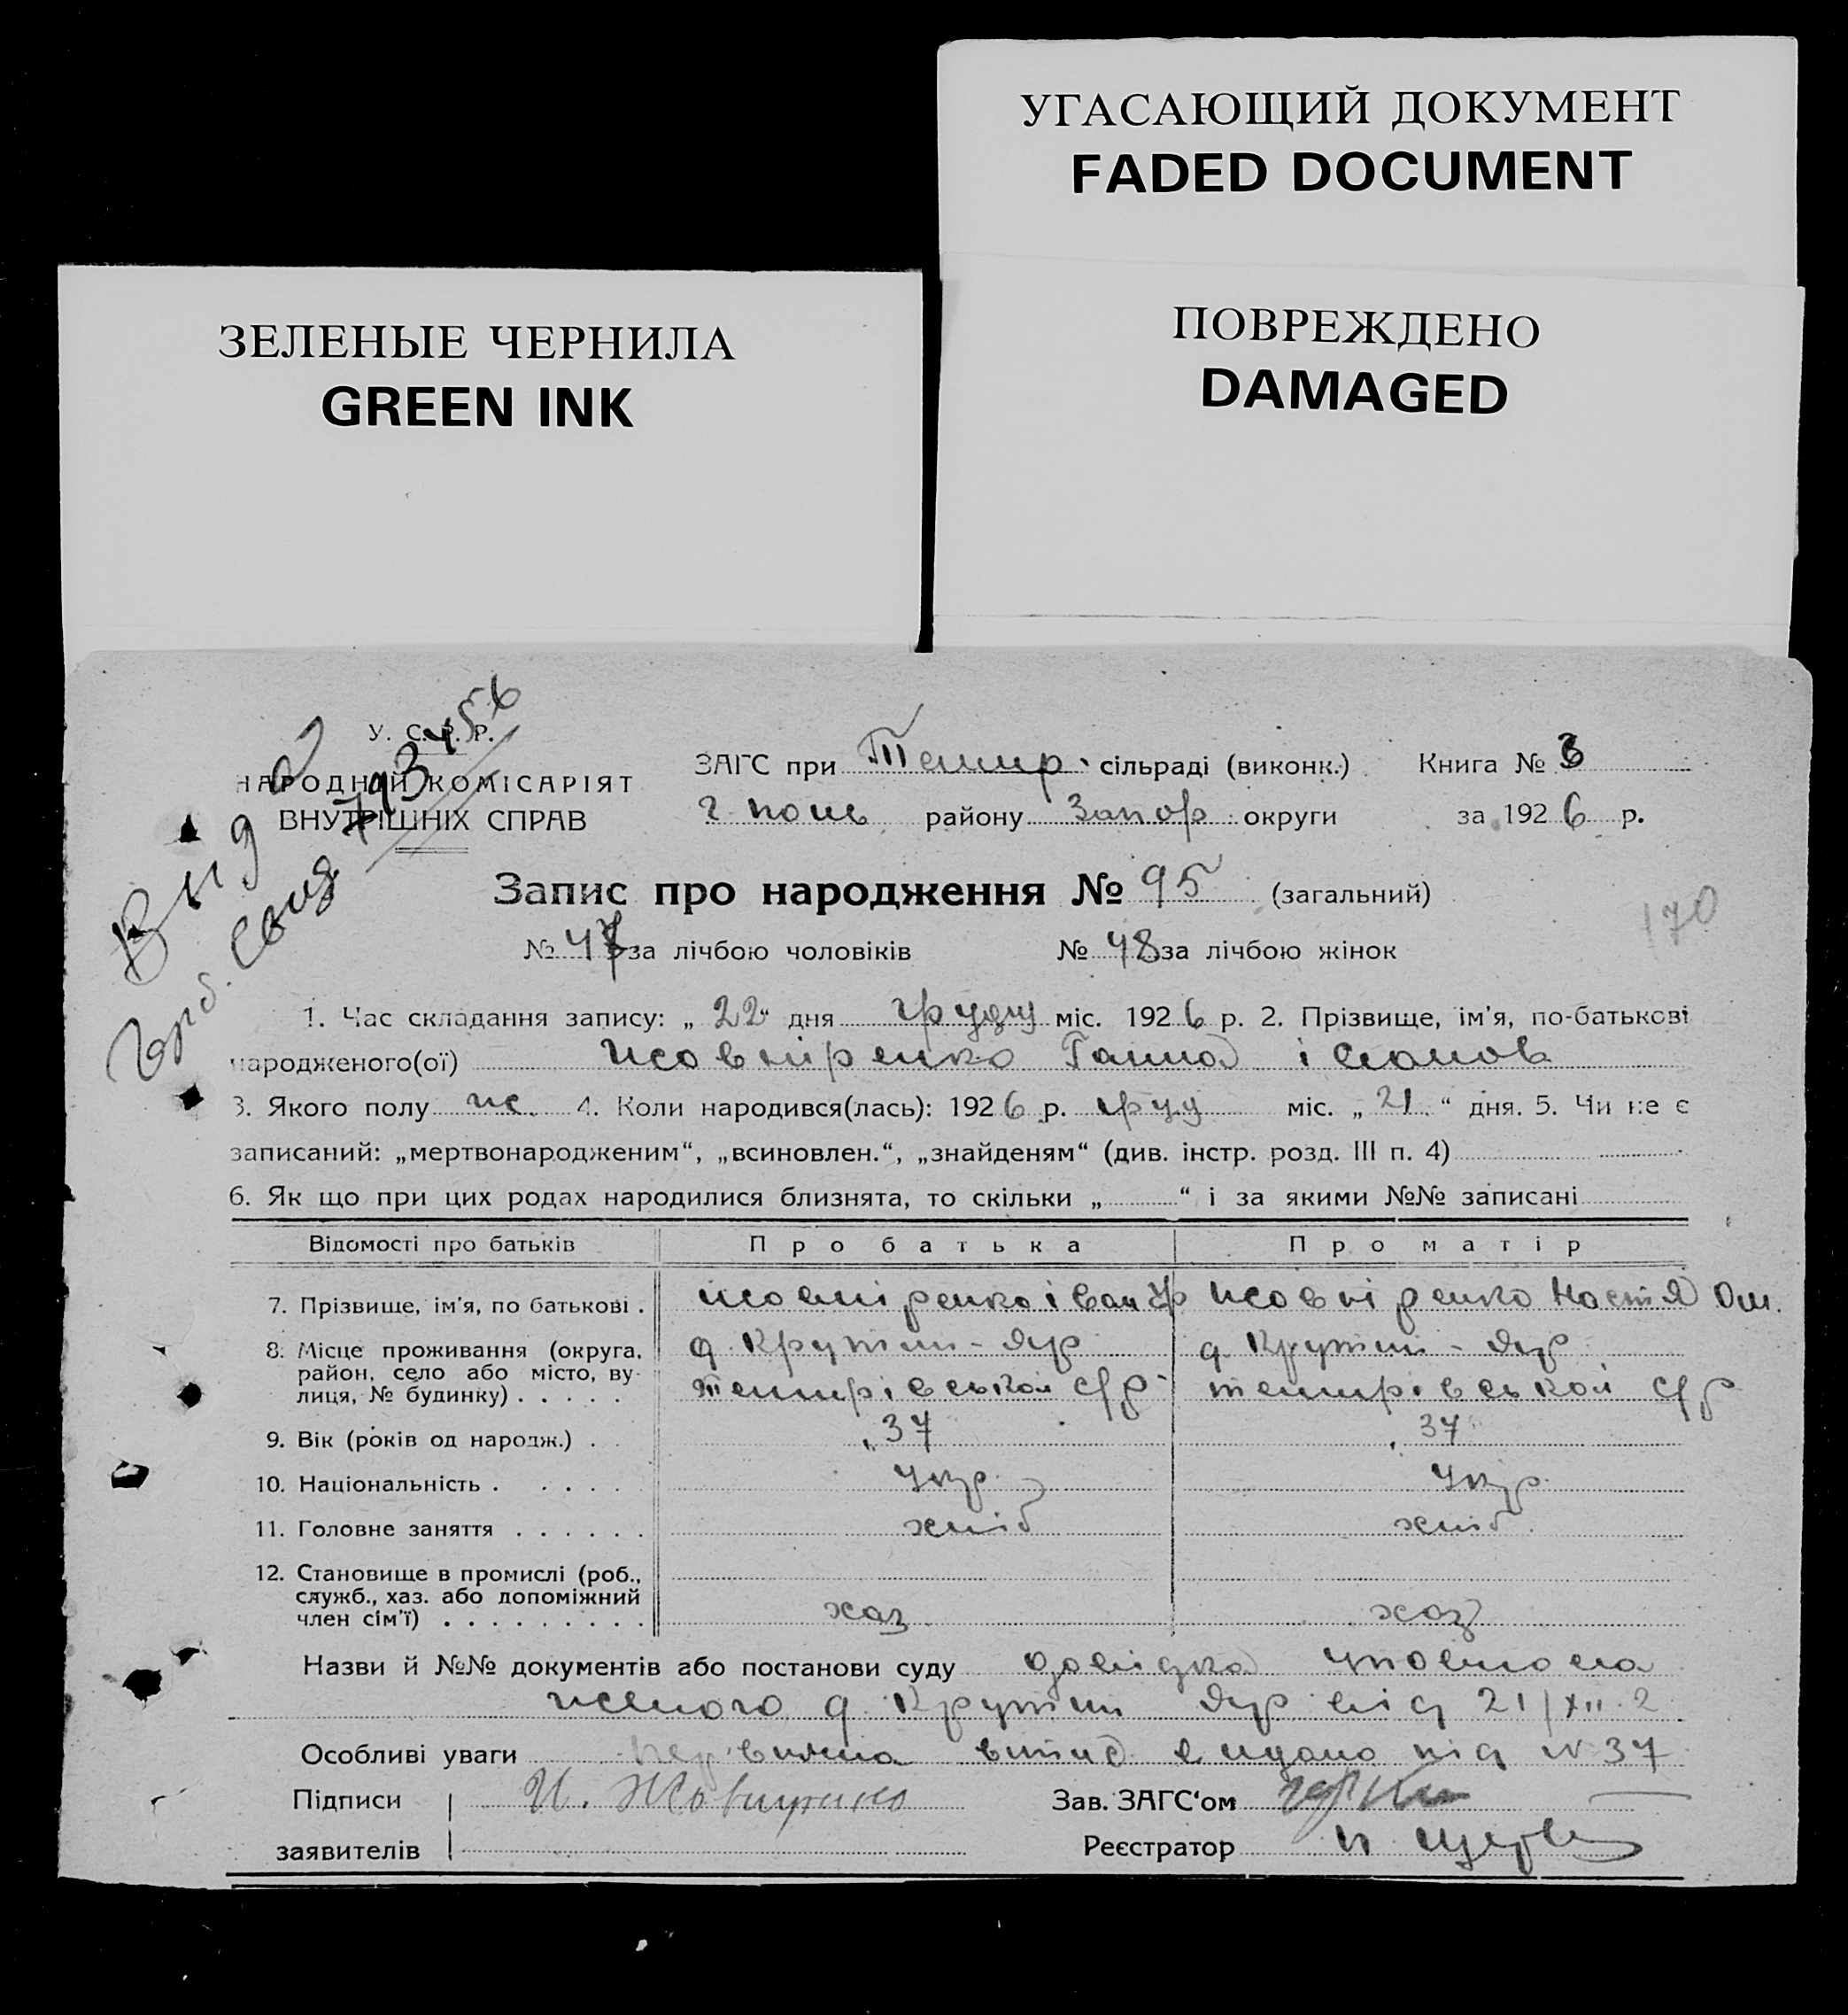 УГАСАЮЩИЙ ДОКУМЕНТ
FADED DOCUMENT
ЗЕЛЕНЫЕ ЧЕРНИЛА
GREEN INK
ПОВРЕЖДЕНО
DAMAGED
У. С. Р. Р.
НАРОДНИЙ КОМІСАРІЯТ
ВНУТРІШНІХ СПРАВ
ЗАГС при сільраді (виконк.) Книга №
району Запор округи за 1926 р.
Запис про народження № 95 (загальний)
№ 47 за лічбою чоловіків № 48 за лічбою жінок
170
1. Час складання запису: „22“ дня грудня міс. 1926 р. 2. Прізвище, ім'я, по-батькові
народженого(ої) Жовніренко Ганна Іванов
3. Якого полу ж. 4. Коли народився(лась): 1926 р. груд міс. „21“ дня. 5. Чи не є
записаний: „мертвонародженим“, „всиновлен.“, „знайденям“ (див. інстр. розд. III п. 4)
6. Як що при цих родах народилися близнята, то скільки „ “ і за якими №№ записані
Відомості про батьків Про батька Про матір
7. Прізвище, ім'я, по батькові . Жовніренко Іван Жовніренко Настя
8. Місце проживання (округа, район, село або місто, вулиця, № будинку) . . . . . д. Крутий-Яр с/р д. Крутий-Яр с/р
9. Вік (років од народж.) . . 37 37
10. Національність . . . . . Укр. Укр.
11. Головне заняття . . . . . . хліб хліб
12. Становище в промислі (роб., служб., хаз. або допоміжний член сім'ї) . . . . . . . . . хаз хаз
Назви й №№ документів або постанови суду довідка уповнова
женого д. Крутий Яр від 21/XII 2
Особливі уваги первисна витяг видано під № 37
Підписи Зав. ЗАГС'ом
заявителів Реєстратор